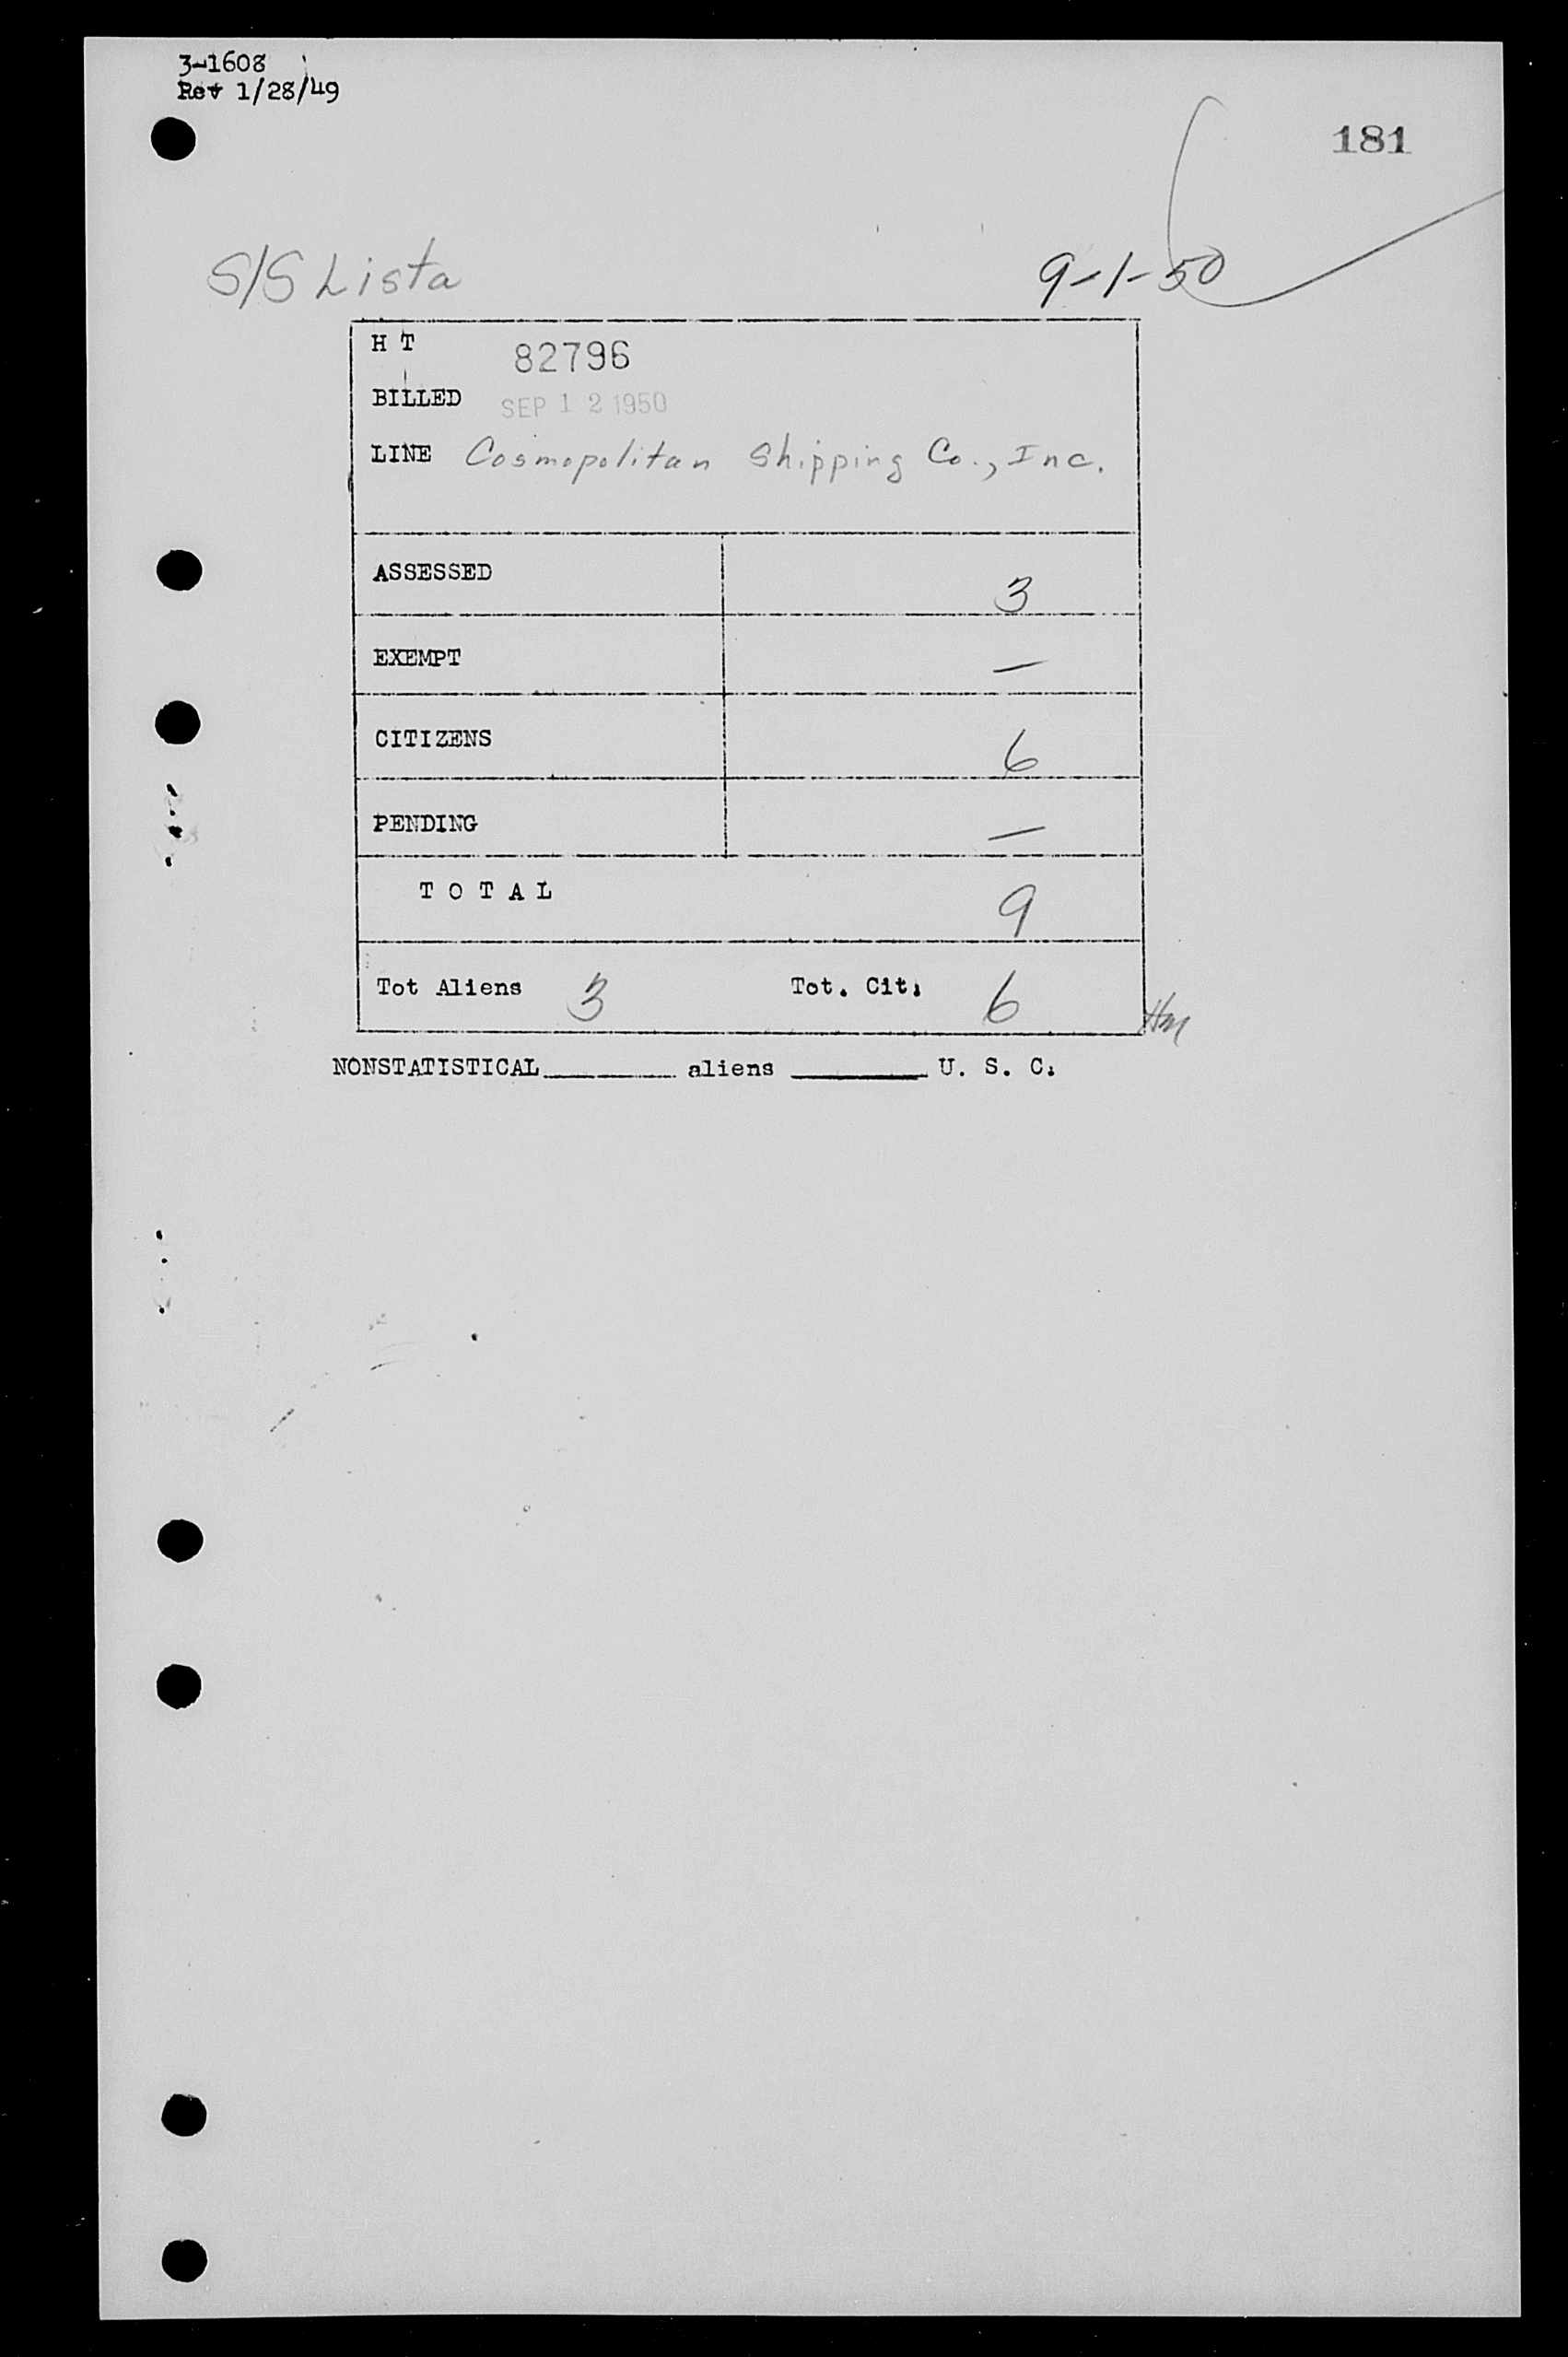 3-1608
Rev 1/28/49
181
S/S Lista 9-1-50
H T 82796
BILLED SEP 12 1950
LINE Cosmopolitan Shipping Co., Inc.
ASSESSED 3
EXEMPT —
CITIZENS 6
PENDING —
T O T A L 9
Tot Aliens 3 Tot. Cit. 6
NONSTATISTICAL________ aliens ________ U. S. C.